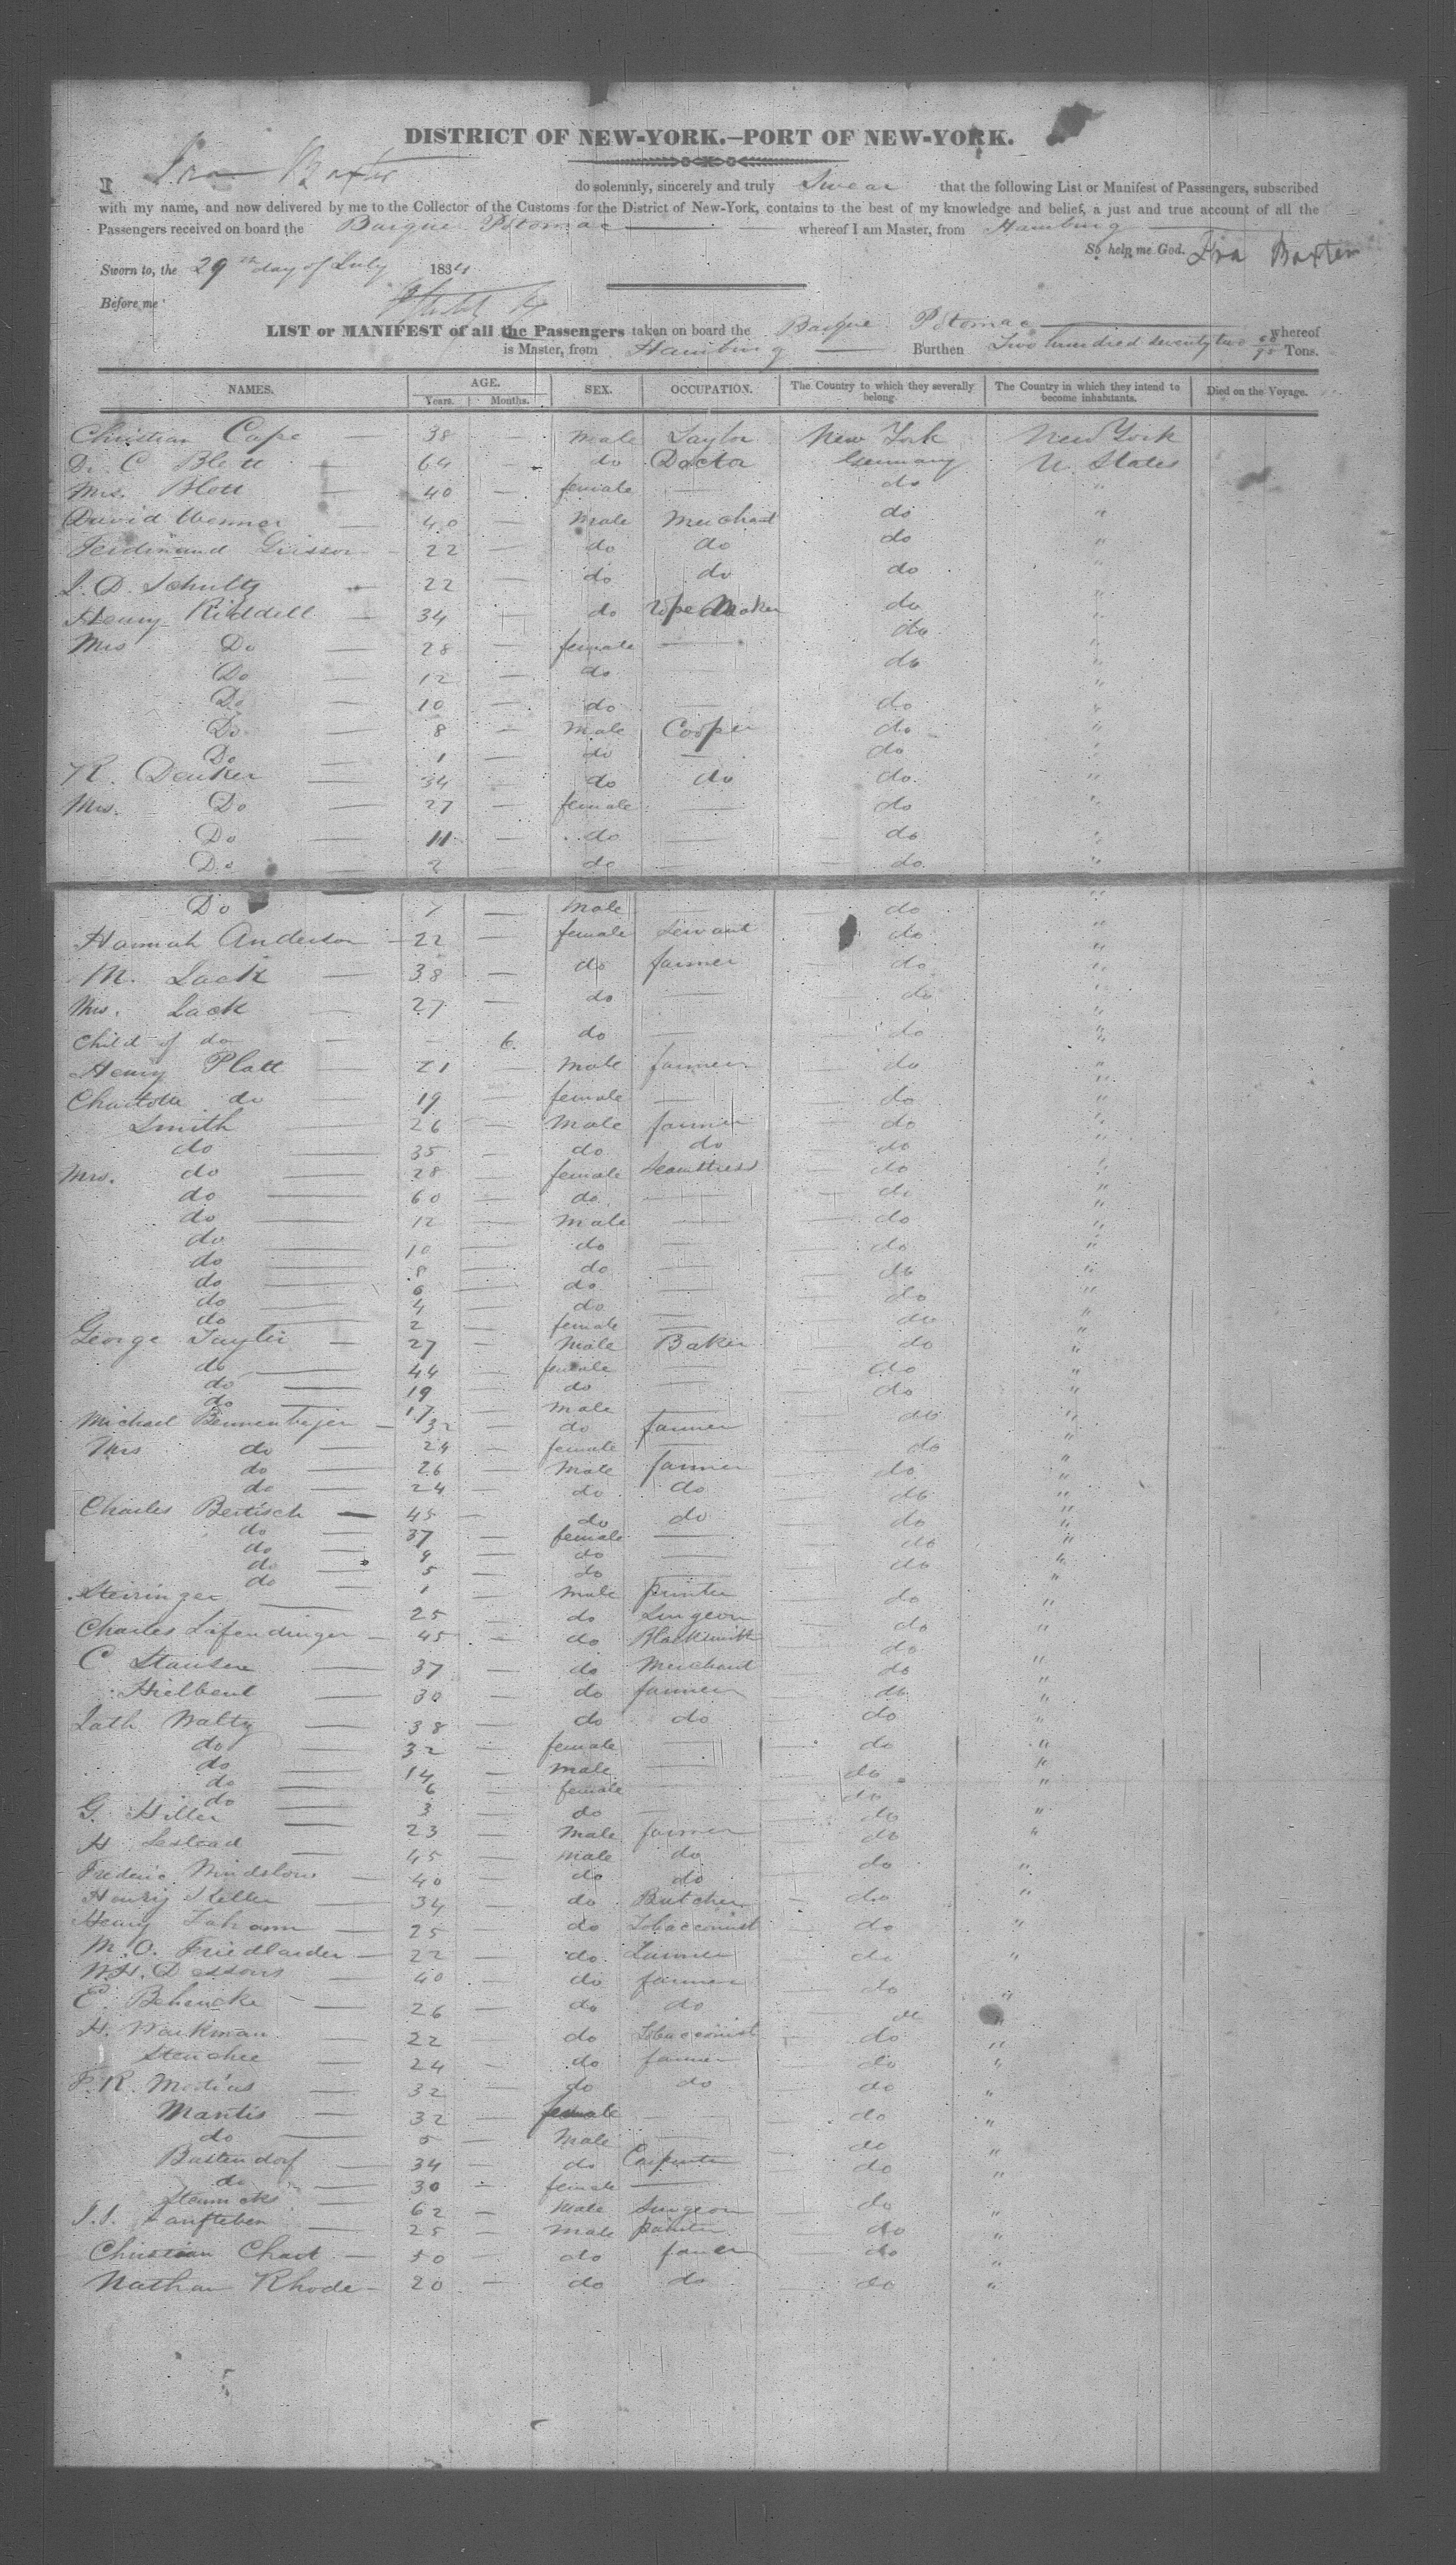 DISTRICT OF NEW-YORK.—PORT OF NEW-YORK.
I Ira Baxter do solemnly, sincerely and truly Swear that the following List or Manifest of Passengers, subscribed
with my name, and now delivered by me to the Collector of the Customs for the District of New-York, contains to the best of my knowledge and belief, a just and true account of all the
Passengers received on board the Barque Potomac whereof I am Master, from Hamburg
So help me God. Ira Baxter
Sworn to, the 29th day of July 1834
Before me
LIST or MANIFEST of all the Passengers taken on board the Barque Potomac whereof
is Master, from Hamburg Burthen Two hundred seventy two Tons.
NAMES. AGE. SEX. OCCUPATION. The Country to which they severally belong. The Country in which they intend to become inhabitants. Died on the Voyage.
Years. Months.
Christian Cape — 38 — Male Taylor New York New York
Dr. C 64 do Docta Germany U. States
Mrs. 40 — female — do "
David 40 — Male Merchant do "
Ferdinand 22 — do do do "
J. D. Schultz 22 — do do do "
Henry Riddell — 34 — do rope Maker do "
Mrs Do — 28 — female — do "
Do — 12 — do — do "
Do — 10 — do — do "
Do — 8 — Male Cooper do "
Do — 1 — do — do "
Denker — 34 — do do do "
Mrs. Do — 27 — female — do "
Do — 11 — do — do "
Do — 2 — do — do "
Do 7 — Male — do "
Hannah Anderson — 22 — female Servant do "
M. Lack — 38 — do farmer do "
Mrs. Lack — 27 — do — do "
Child of do — — 6 do — do "
Henry Platt — 21 — Male farmer do "
Charlotte do — 19 — female — do "
Smith — 26 — Male farmer do "
do — 35 — do do do "
Mrs. do — 28 — female Seamstress do "
do — 60 — do — do "
do — 12 — Male — do "
do — 10 — do — do "
do — 8 — do do "
do — 6 — do do "
do — 4 — do — do "
do — 2 — female — do "
George — 27 — Male Baker do "
do — 44 — female — do "
do — 19 — do — do "
do — 17 — Male
Michael — 32 — do farmer do "
Mrs do — 24 — female — do "
do — 26 — Male farmer do "
do — 24 — do do do "
Charles Bertisch — 45 — do do do "
do — 37 — female — do "
do — 9 — do — do "
do — 5 — do — do "
do — 1 — Male
Steiringer — 25 do Surgeon do "
Charles — 45 — do Blacksmith do "
C — 37 — do Merchant do "
30 — do farmer do "
Waltz — 38 do do do "
do — 32 — female — do "
do — 14 — Male — do "
do — 6 female do "
do — 3 do — do "
G. Hiller — 23 — Male farmer do "
H. 45 — male do do "
Frederic — 40 — do do do "
Henry — 34 — do Butcher do "
Henry — 25 do Tobacconist do "
M. O. Friedlander — 22 — do do "
W. H. — 40 do farmer do "
E. — 26 — do do do "
H. Workman 22 — do Tobacconist do "
24 — do farmer do "
F. R. — 32 — do do do "
Mantis — 32 — female — do "
do — 5 — Male do "
Bastendorf — 34 — do Carpenter do "
do — 30 — female — do "
62 — Male Surgeon do "
J. J. — 25 — Male do "
Christian — 50 — do do "
Nathan Rhode — 20 — do do do "